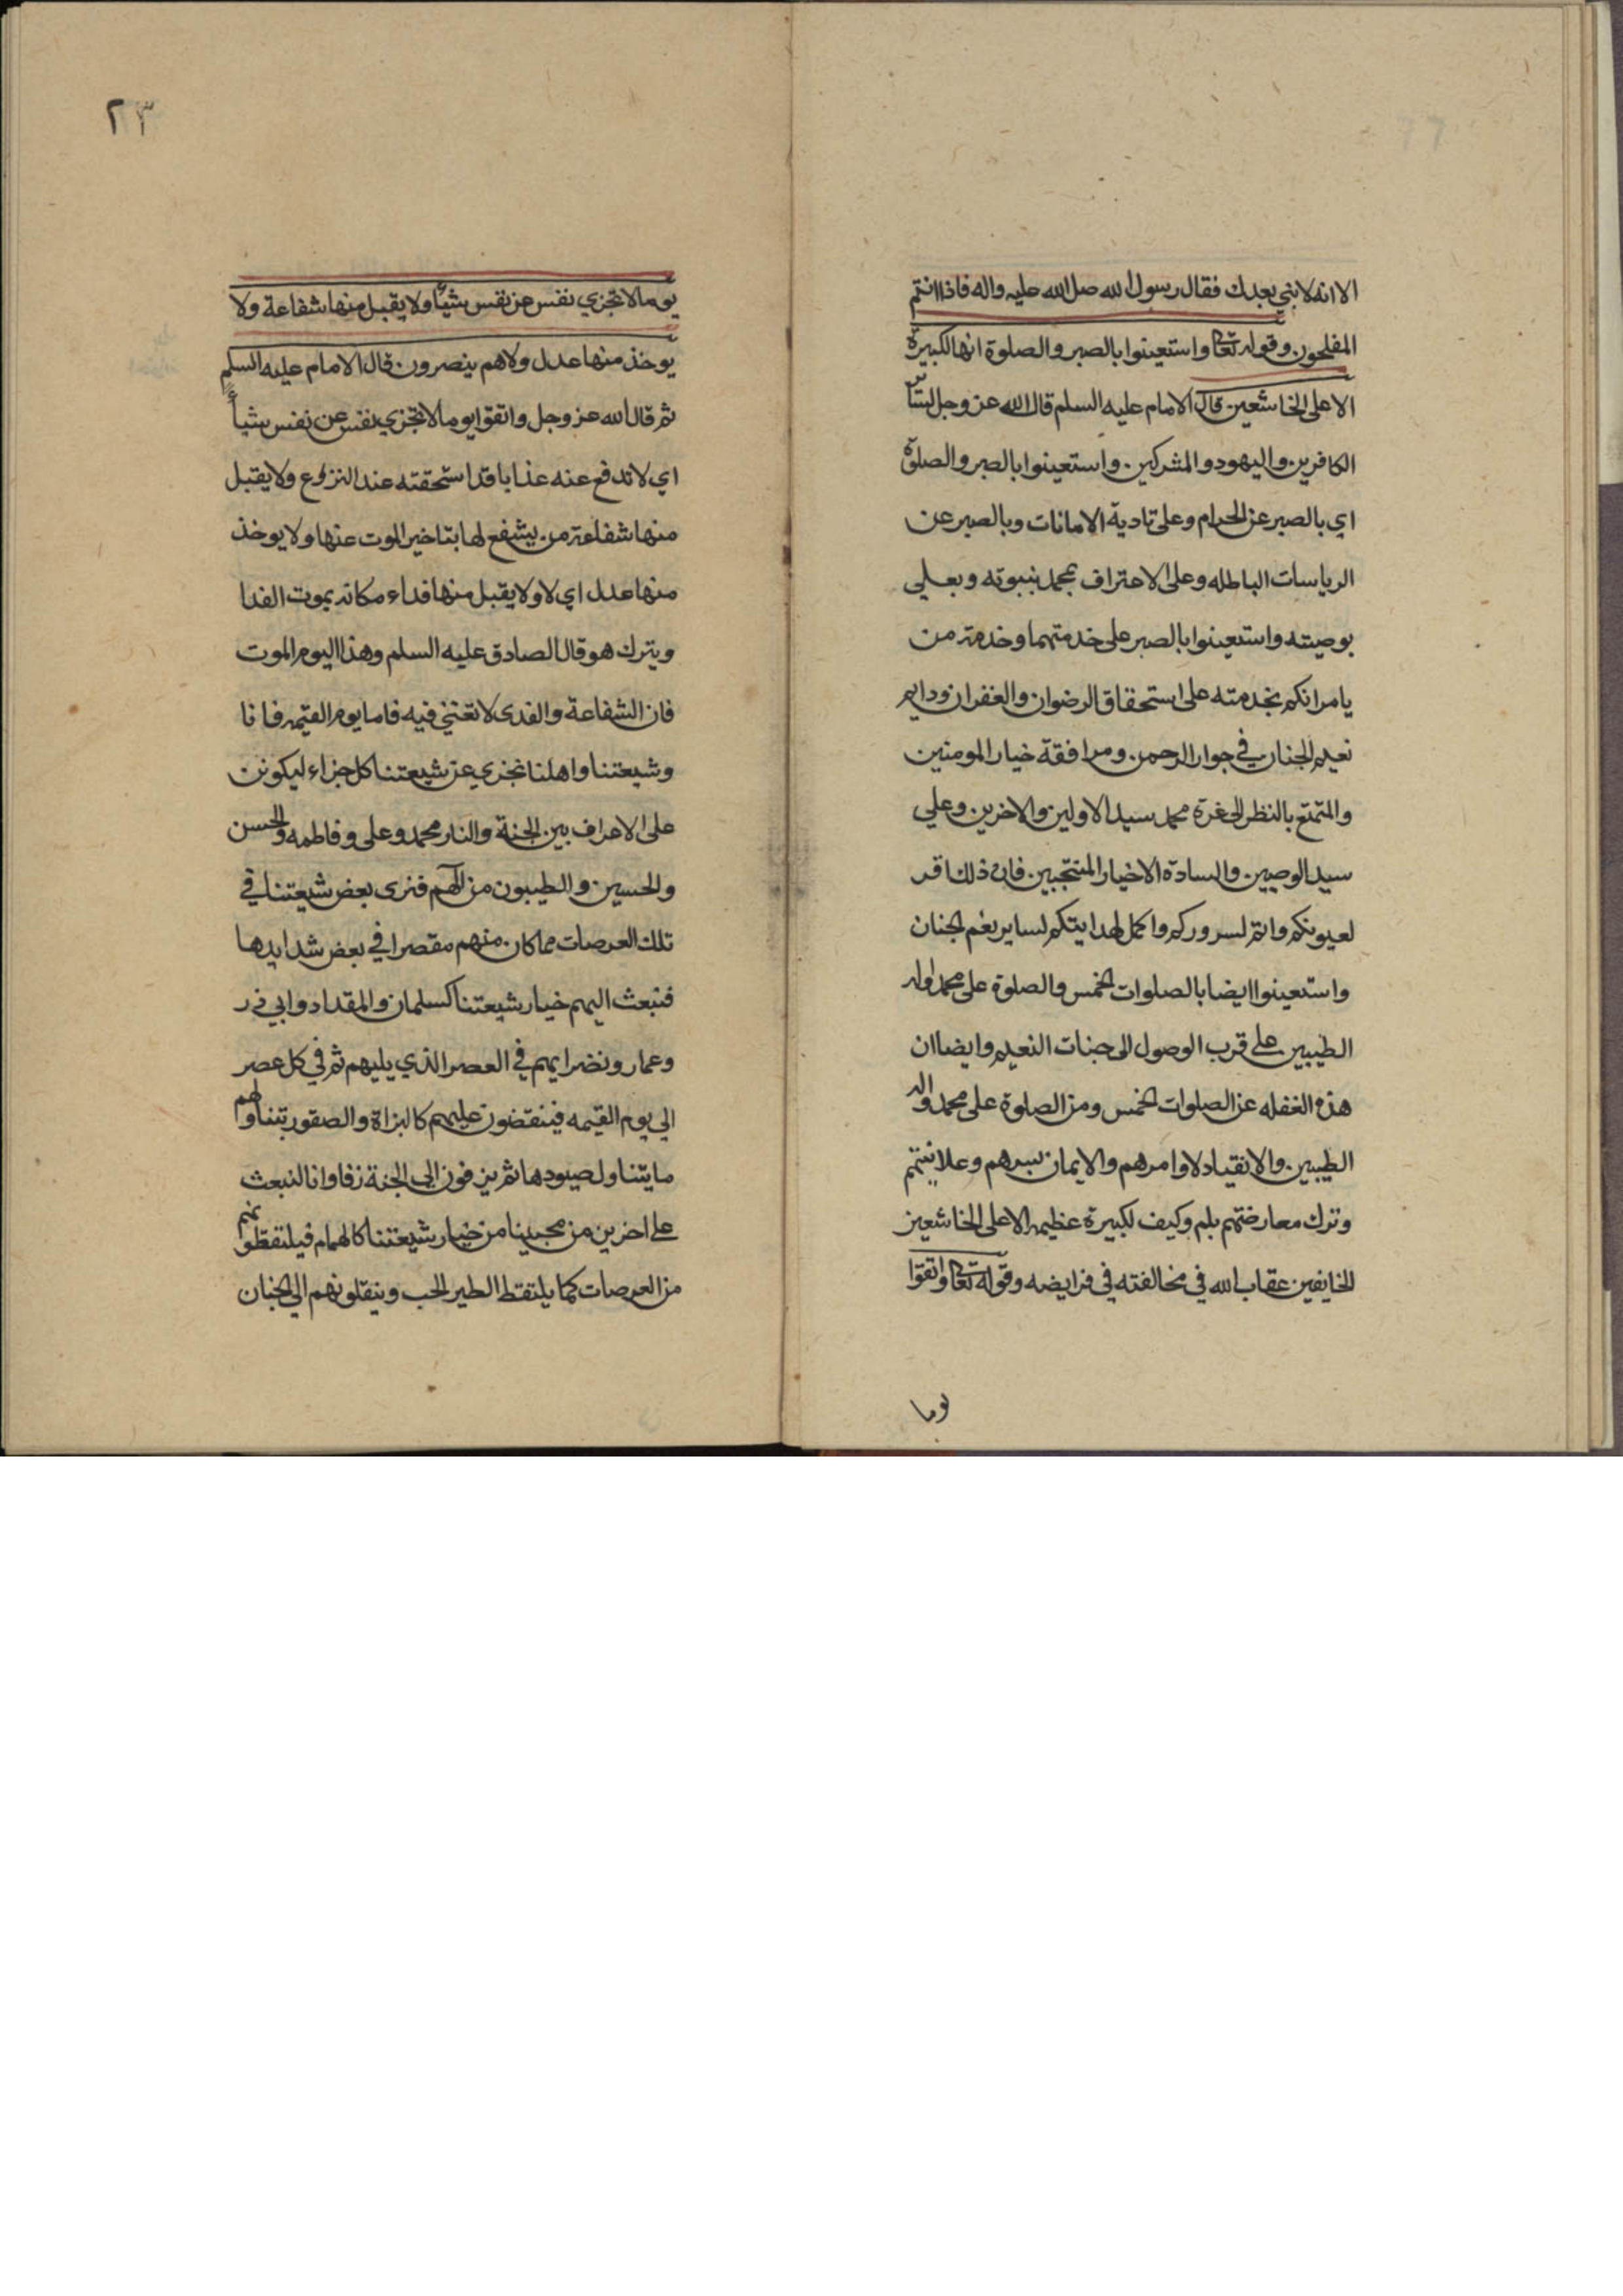 الا انه لا نبي بعدك فقال رسول الله صل الله عليه واله فاذا انتم
المفلحون وقوله تعا واستعينوا بالصبر والصلوة انها لكبيرة
الا على الخاشعين قال الامام عليه السلم قال الله عز وجل لسائر
الكافرين واليهود والمشركين واستعينوا بالصبر والصلوة
اي بالصبر عن الحرام وعلى تادية الامانات وبالصبر عن
الرياسات الباطله وعلى الاعتراف بمحمد بنبوته وبعلي
بوصيته واستعينوا بالصبر على خدمتهما وخدمة من
يامرانكم بخدمته على استحقاق الرضوان والغفران ودايم
نعيم الجنان في جوار الرحمن ومرافقة خيار المومنين
والتمتع بالنظر الى غرة محمد سيد الاولين والاخرين وعلي
سيد الوصيين والسادة الاخيار المنتجبين فان ذلك اقر
لعيونكم واتم لسروركم واكمل لهدايتكم لساير نعم الجنان
واستعينوا ايضا بالصلوات الخمس والصلوة على محمد واله
الطيبين على قرب الوصول الى جنات النعيم وايضا ان
هذه الغفله عن الصلوات الخمس ومن الصلوة على محمد واله
الطيبين والانقياد لاوامرهم والايمان بسرهم وعلانيتهم
وترك معارضتهم بلم وكيف لكبيرة عظيمه الا على الخاشعين
الخايفين عقاب الله في مخالفته في فرايضه وقوله تعا واتقوا
يوما
٢٣
يوما لا تجزي نفس عن نفس شيأ ولا يقبل منها شفاعة ولا
يوخذ منها عدل ولا هم ينصرون قال الامام عليه السلم
ثم قال الله عز وجل واتقوا يوما لا تجزي نفس عن نفس شيأ
اي لا تدفع عنه عذابا قد استحقته عند النزوع ولا يقبل
منها شفاعة من يشفع لها بتاخير الموت عنها ولا يوخذ
منها عدل اي لا ولا يقبل منها فداء مكانه بموت الفدا
ويترك هو قال الصادق عليه السلم وهذا اليوم الموت
فان الشفاعة والفدى لا تغني فيه فاما يوم القيمه فانا
وشيعتنا واهلنا نجزي عن شيعتنا كل جزاء ليكونن
على الاعراف بين الجنة والنار محمد وعلى وفاطمه والحسن
والحسين والطيبون من آلهم فنرى بعض شيعتنا في
تلك العرصات مما كان منهم مقصرا في بعض شدايدها
فنبعث اليهم خيار شيعتنا كسلمان والمقداد وابي ذر
وعمار ونضرايهم في العصر الذي يليهم ثم في كل عصر
الي يوم القيمه فينقضون عليهم كالبزاة والصقور يتناولهم
ما يتناول صيودها ثم يزفون الى الجنة زفا وانا لنبعث
على اخرين من محبينا من خيار شيعتنا كالهمام فيلتقطونهم
من العرصات كما يلتقط الطير الحب وينقلونهم الي الجنان